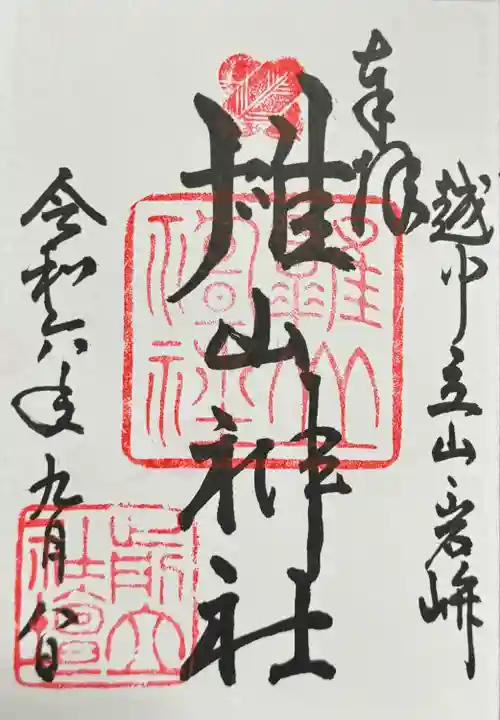 奉拝
越中立山岩峅
雄山神社
令和六年九月八日
前立
社壇